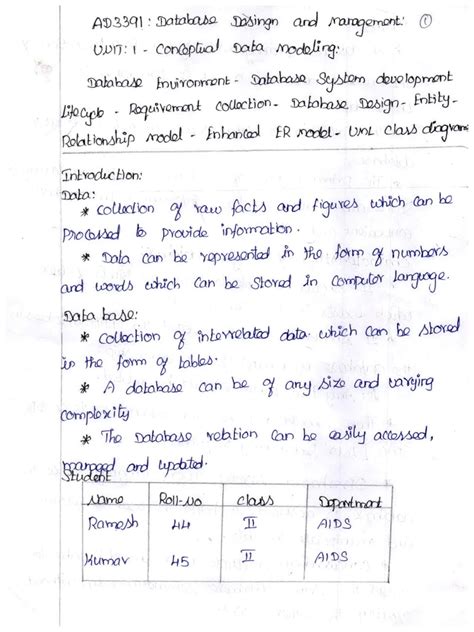 AD3391: Database Desingn and management: ①
UNIT: 1 - Conceptual Data Modeling:
Database Environment - Database System development
Lifecycle - Requirement collection - Database Design - Entity-
Relationship model - Enhanced ER model - UML class diagrams
Introduction:
Data:
* collection of raw facts and figures which can be
processed to provide information.
* Data can be represented in the form of numbers
and words which can be stored in computer language.
Data base:
* collection of interrelated data which can be stored
in the form of tables.
* A database can be of any size and varying
complexity
* The Database relation can be easily accessed,
managed and updated.
Student
Name Roll-No class Department
Ramesh 44 II AIDS
Kumar 45 II AIDS